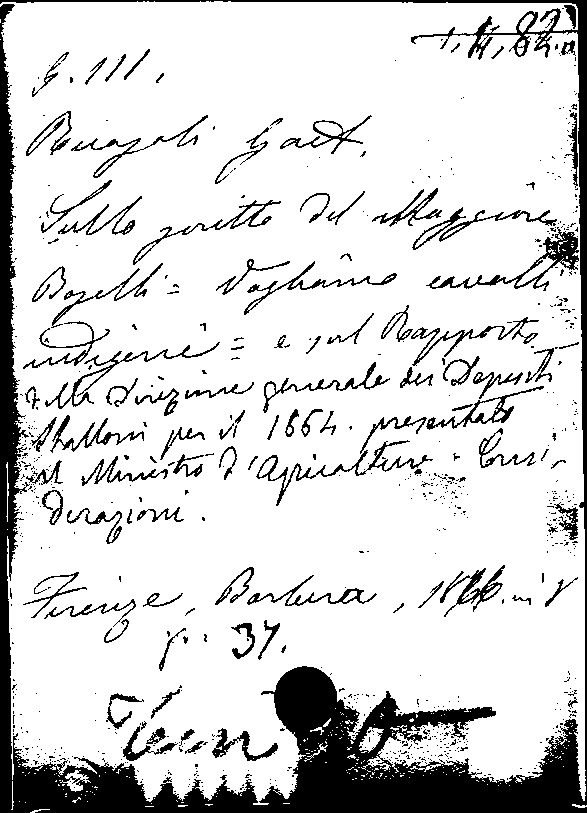 G. 111.
Gaet.
Sullo scritto del Maggiore
Boselli = Vogliamo cavalli
indigeni = e sul Rapporto
della Direzione generale dei Depositi
Stalloni per il 1864. presentato
al Ministro d'Agricoltura - Consi-
derazioni.
Firenze, Barbera, 1866. in 8
p. 37.